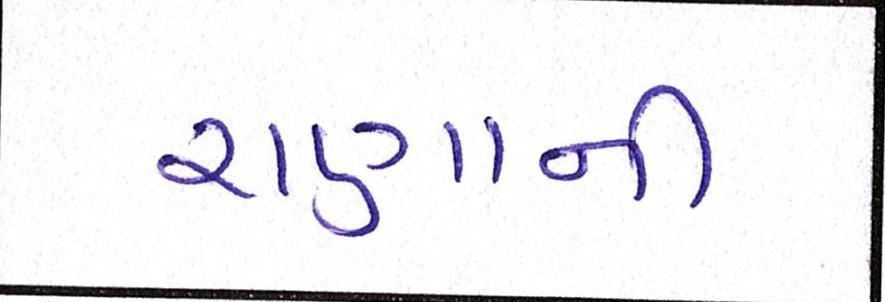 રાણાની